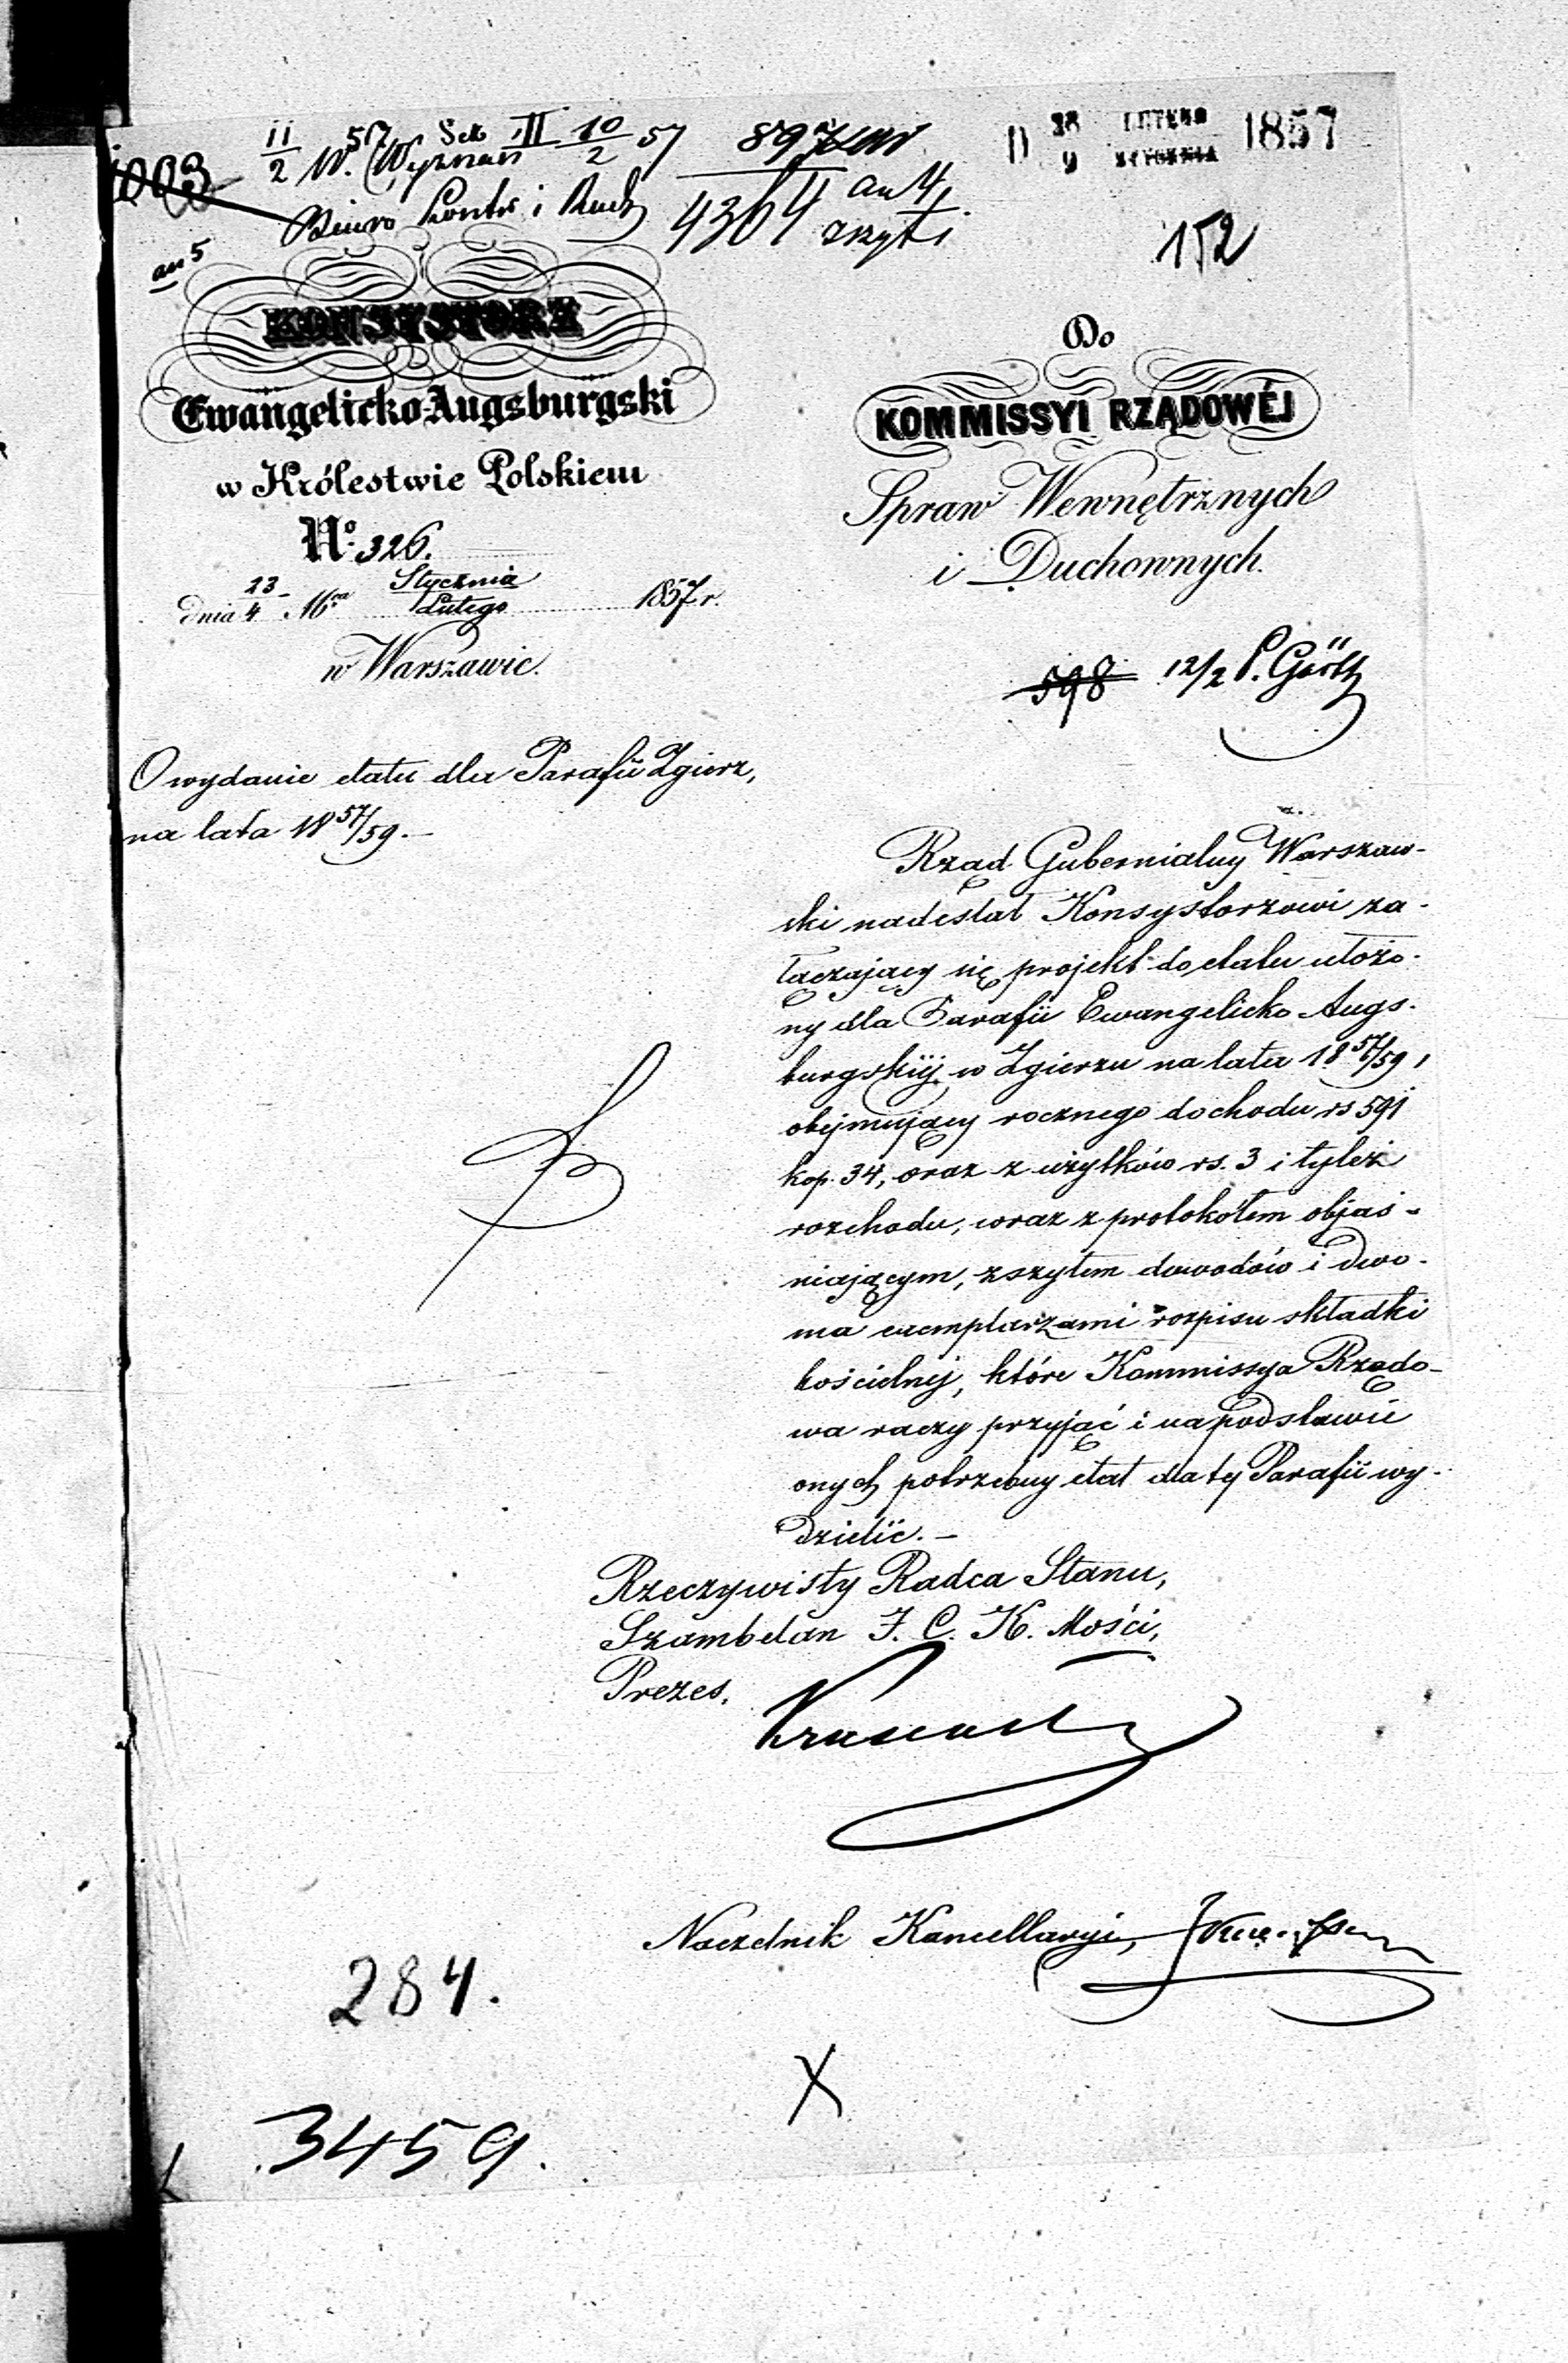 11/2 57 W. Wyznań Sek. II 10/2 57
897
D 28 LUTEGO 1857
9 STYCZNIA
1003
Biuro Kontr i Rach
4364 an 4,
zszyt 1
an 5
152
KONSYSTORZ
Ewangelicko-Augsburgski
w Królestwie Polskiem
No. 326.
dnia 23/4 Mca Stycznia/Lutego 1857 r.
w Warszawie.
Do
KOMMISSYI RZĄDOWÉJ
Spraw Wewnętrznych
i Duchownych.
598 12/2 P.
O wydanie etatu dla Parafii Zgierz,
na lata 18 57/59. –
Rząd Gubernialny Warszaw-
ski nadesłał Konsystorzowi za-
łączający się projekt do etatu ułożo-
ny dla Parafii Ewangelicko Augs-
burgskiéj w Zgierzu na lata 18 57/59,
obejmujący rocznego dochodu rs 591
kop. 34, oraz z użytków rs. 3 i tyleż
rozchodu, wraz z protokółem objaś-
niającym, zszytem dowodów i dwo-
ma exemplarzami rozpisu składki
kościelnej, które Kommissya Rządo-
wa raczy przyjąć i na podstawie
onych potrzebny etat dla téj Parafii wy-
dzielić. –
Rzeczywisty Radca Stanu,
Szambelan J. C. K. Mości,
Prezes,
Naczelnik Kancellaryi,
284.
X
3459.